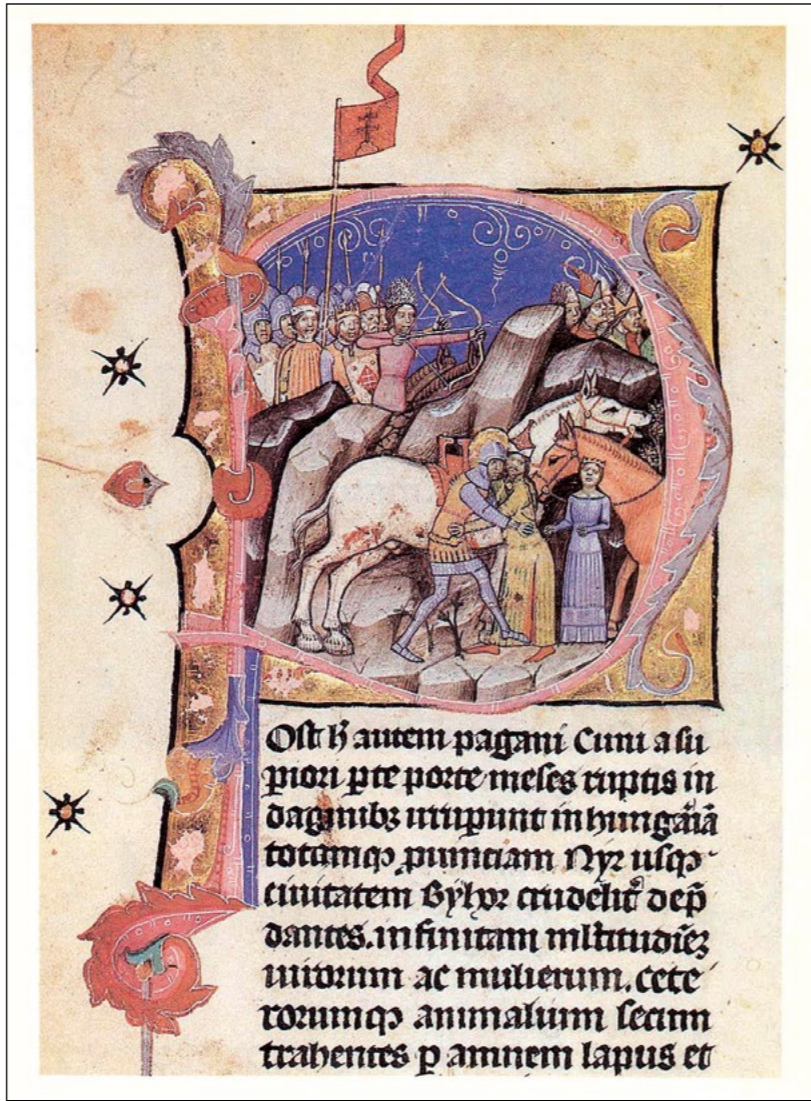 POst h̄ autem pagani Cuni a su
ꝑiori ꝑte porte meses ruptis in
daginibꝫ irruꝑunt in hungaꝛiã
totamqꝫ ꝓuintiam Nyr usqꝫ
ciuitatem Byhor crudelit̃ dep̄
dantes. infinitam ml̃titudiẽꝫ
uirorum ac mulierum. cete
rorumqꝫ animalium secum
trahentes ꝑ amnem lapus et